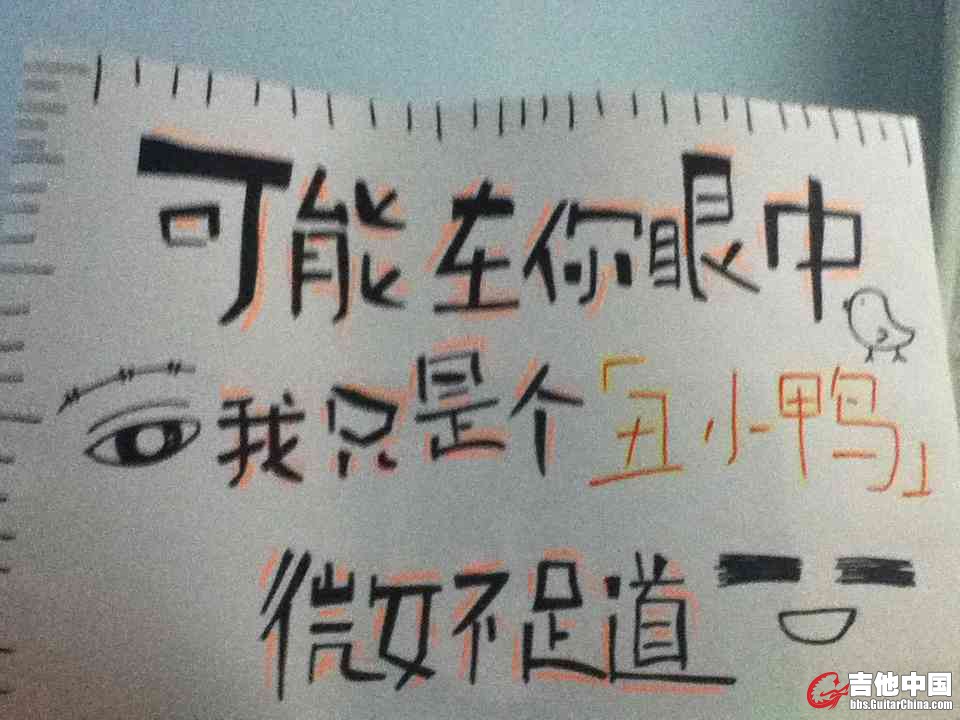 可能在你眼中
我只是个「丑小鸭」
微不足道
吉他中国
bbs.GuitarChina.com